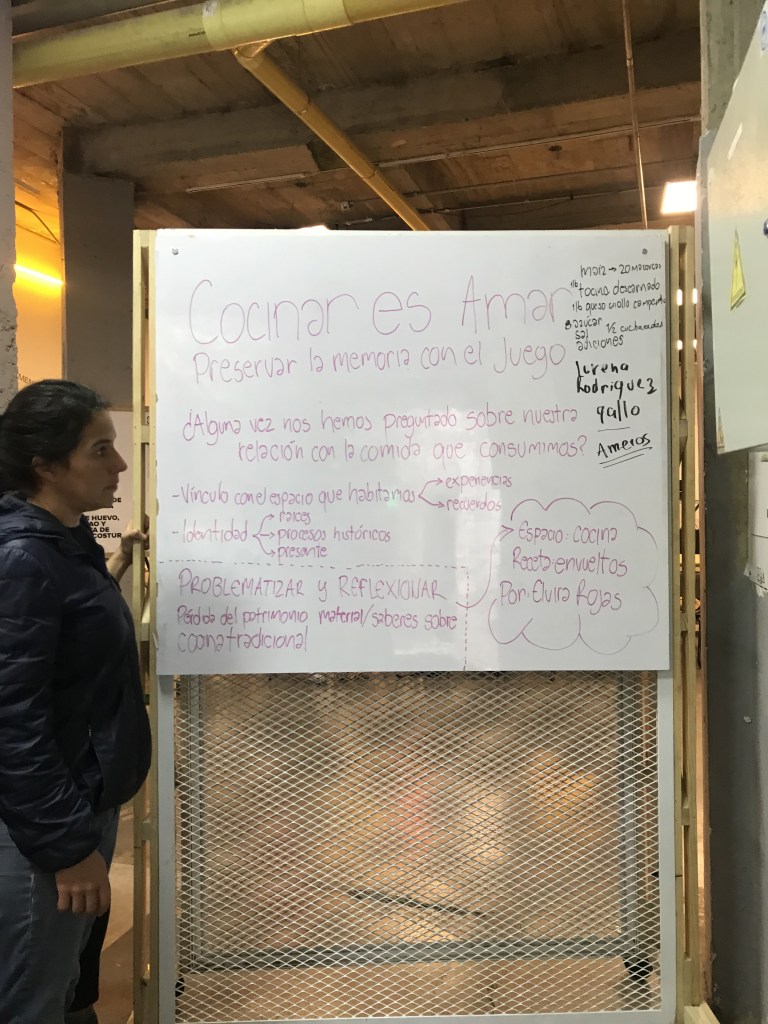 Cocinar es Amar
Preservar la memoria con el Juego
¿Alguna vez nos hemos preguntado sobre nuestra
relación con la comida que consumimos?
-Vínculo con el espacio que habitamos
experiencias
recuerdos
-Identidad
raices
procesos históricos
presente
PROBLEMATIZAR y REFLEXIONAR
Pérdida del patrimonio material/saberes sobre
cocina tradicional
Espacio: cocina
Receta: envueltos
Por: Elvira Rojas
maiz → 20 mazorcas
1lb tocino descarnado
1lb queso criollo
azucar
sal 1/2 cucharadas
adiciones
Lorena
Rodriguez
gallo
Ameros
DE
HUEVO,
AO Y
A DE
COSTUR